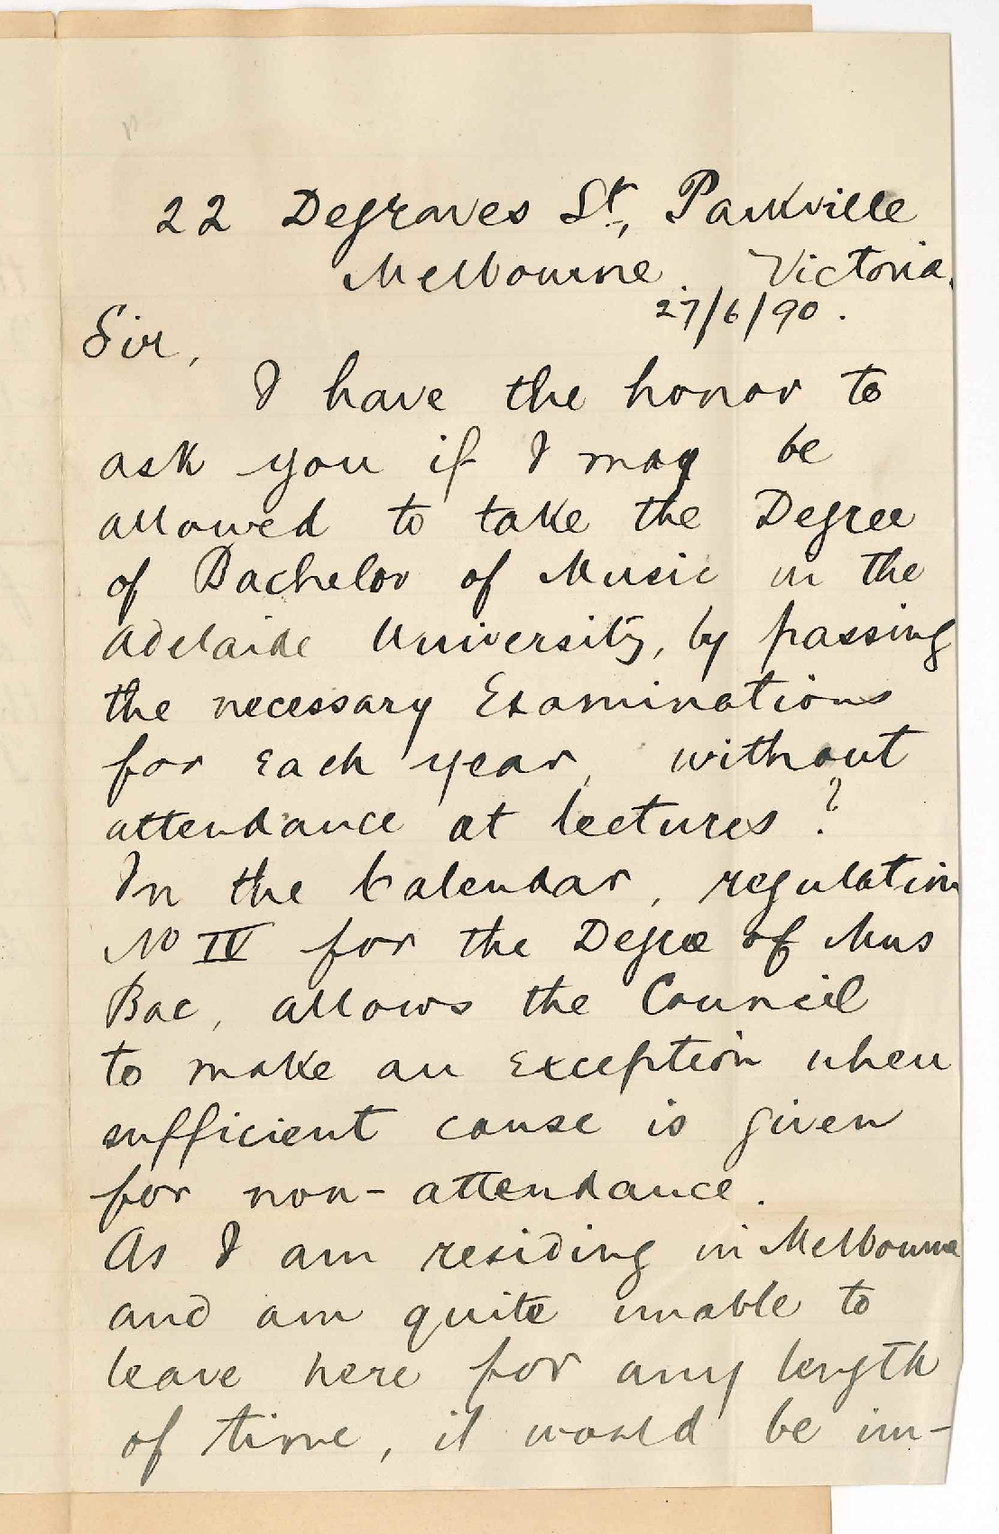 22 Degraves St., Parkville
Melbourne. Victoria.
27/6/90.
Sir,
I have the honor to
ask you if I may be
allowed to take the Degree
of Bachelor of Music in the
Adelaide University, by passing
the necessary Examinations
for each year, without
attendance at lectures?
In the Calendar, regulation
No IV for the Degree of Mus
Bac, allows the Council
to make an exception when
sufficient cause is given
for non-attendance.
As I am residing in Melbourne
and am quite unable to
leave here for any length
of time, it would be im-